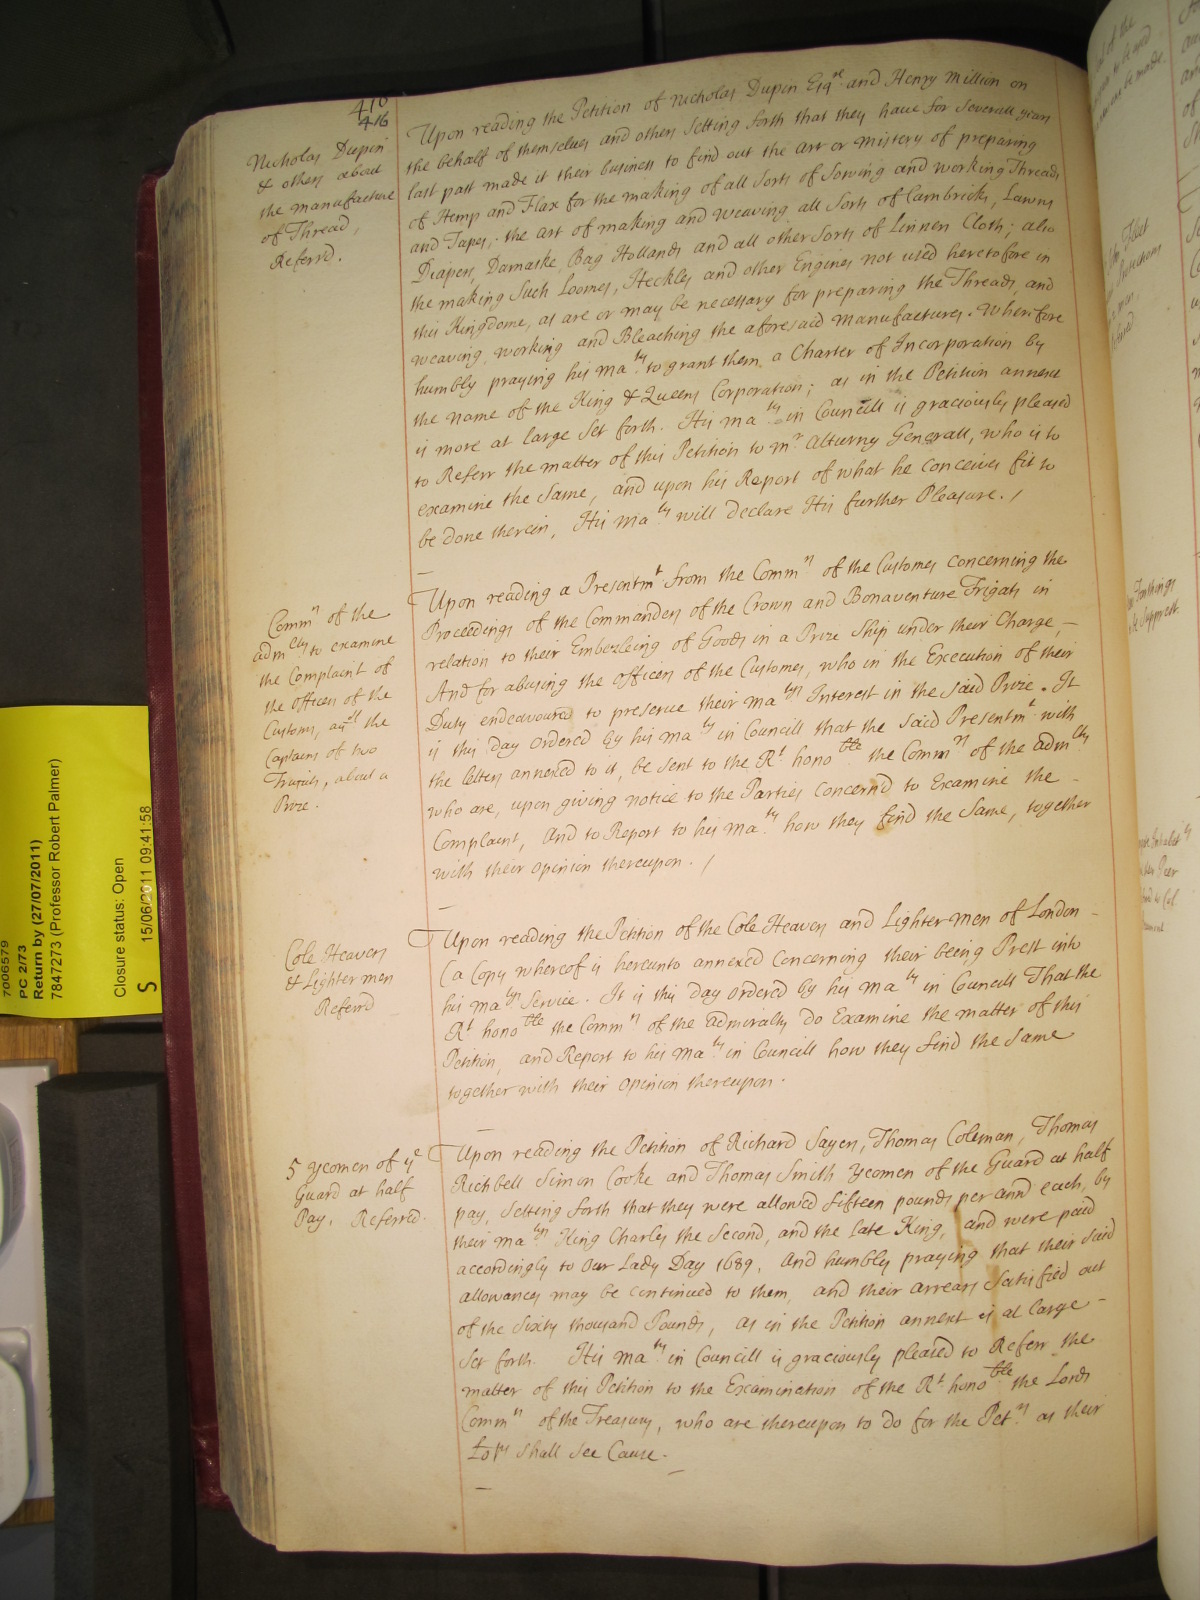 410
416
Nicholas Dupin
& others about
the manufacture
of Thread,
Referrd.
Upon reading the Petition of Nicholas Dupin Esqr and Henry Million on
the behalf of themselves and others Setting forth that they have for Severall years
last past made it their business to find out the art or mistery of preparing
of Hemp and Flax for the making of all Sorts of Sowing and working Threads
and Tapes, the art of making and weaving all Sorts of Cambricks, Lawns
Diapers, Damaske Bag Hollands and all other Sorts of Linnen Cloth; also
the making Such Loomes, Heckles and other Engines not used heretofore in
this Kingdome, as are or may be necessary for preparing the Threads, and
weaving, working and Bleaching the aforesaid manufactures. Wherefore
humbly praying his Maty to grant them a Charter of Incorporation by
the name of the King & Queens Corporation; as in the Petition annext
is more at large Set forth. His Maty in Councill is graciously pleased
to Referr the matter of this Petition to Mr Atturny Generall, who is to
examine the Same, and upon his Report of what he conceives fit to
be done therein, His Maty will declare His further Pleasure. /
Commrs of the
Admlty to examine
the Complaint of
the officers of the
Customs, agst the
Captains of two
Frigats, about a
Prize.
Upon reading a Presentmt from the Commrs of the Customes concerning the
Proceedings of the Commanders of the Crown and Bonaventure Frigats in
relation to their Embezleing of Goods in a Prize Ship under their Charge,
And for abusing the officers of the Customes, who in the Execution of their
Duty endeavoured to preserve their Matys Interest in the said Prize. It
is this day ordered by his Maty in Councill that the said Presentmt with
the letters annexed to it, be sent to the Rt honoble the Commrs of the Admlty
who are, upon giving notice to the Parties concernd to Examine the
Complaint, and to Report to his Maty how they find the Same, together
with their opinion thereupon. /
Cole Heavers
& Lightermen
Referrd
Upon reading the Petition of the Cole Heavers and Lightermen of London
(a Copy whereof is hereunto annexed concerning their being Prest into
his Matys Service. It is this day ordered by his Maty in Councill That the
Rt honoble the Commrs of the Admiralty do Examine the matter of this
Petition, and Report to his Maty in Councill how they find the Same
together with their opinion thereupon.
5 yeomen of ye
Guard at half
Pay. Referred.
Upon reading the Petition of Richard Sayers, Thomas Coleman, Thomas
Richbell Simon Cooke and Thomas Smith yeomen of the Guard at half
pay, Setting forth that they were allowed fifteen pounds per ann each, by
their Matys King Charles the Second, and the late King, and were paid
accordingly to our Lady Day 1689. And humbly praying that their said
allowances may be continued to them, and their arrears Satisfied out
of the Sixty thousand Pounds, as in the Petition annext is at large
Set forth. His Maty in Councill is graciously pleased to Referr the
matter of this Petition to the Examination of the Rt honoble the Lords
Commrs of the Treasury, who are thereupon to do for the Petrs as their
Lops Shall See Cause.
7006579
PC 2/73
Return by (27/07/2011)
7847273 (Professor Robert Palmer)
Closure status: Open
S 15/06/2011 09:41:58